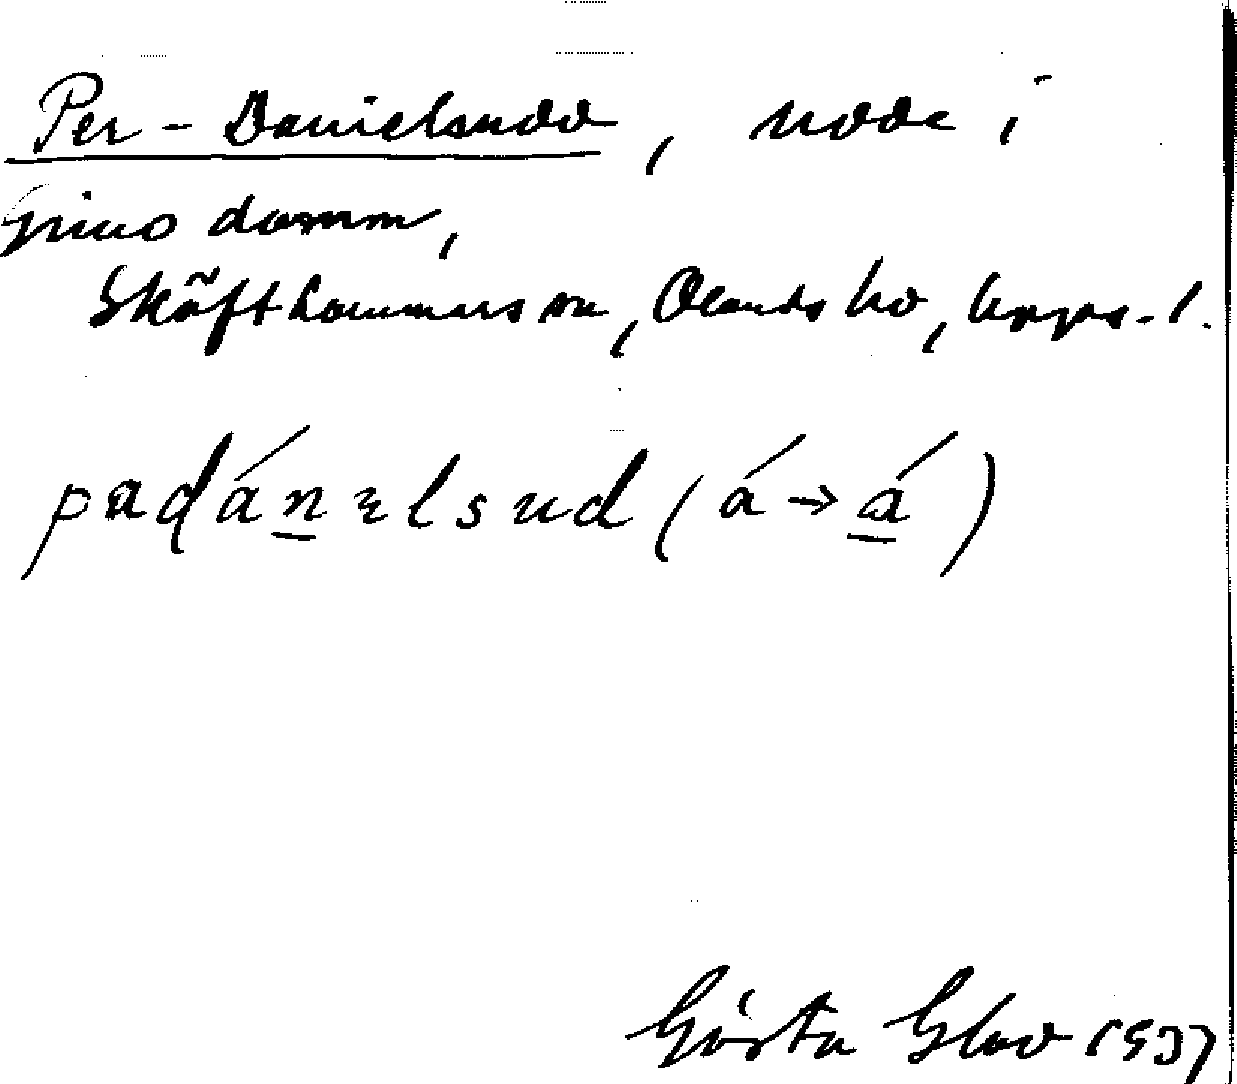 Per-Danielsudd, udde i
Gimo damm,
Skäfthammars sn, Olands hd, Upps. l.
padánelsud (á → á)
Gösta Glad 1937